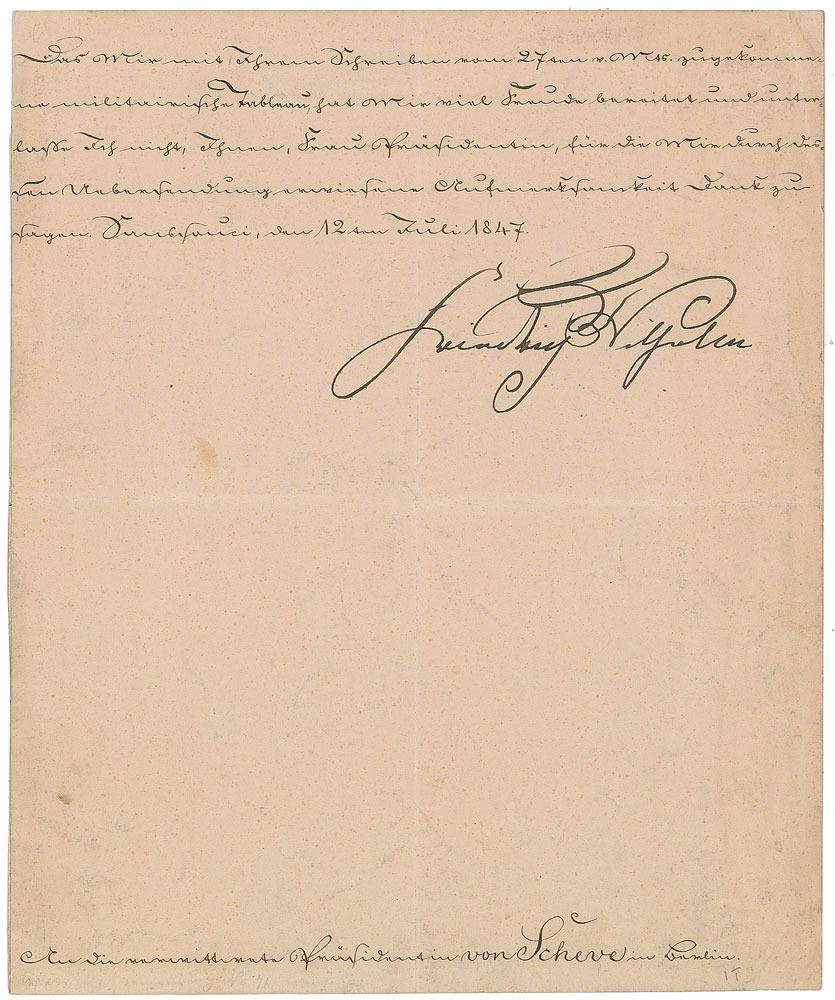 Das Mir mit Ihrem Schreiben vom 27ten v. Mts. zugekomme-
ne militairische Tableau, hat Mir viel Freude bereitet und unter-
lasse Ich nicht, Ihnen, Frau Präsidentin, für die Mir durch des-
sen Uebersendung erwiesene Aufmerksamkeit Dank zu
sagen. Sanssouci, den 12ten Juli 1847.
Friedrich Wilhelm
An die verwittwete Präsidentin von Scheve in Berlin.